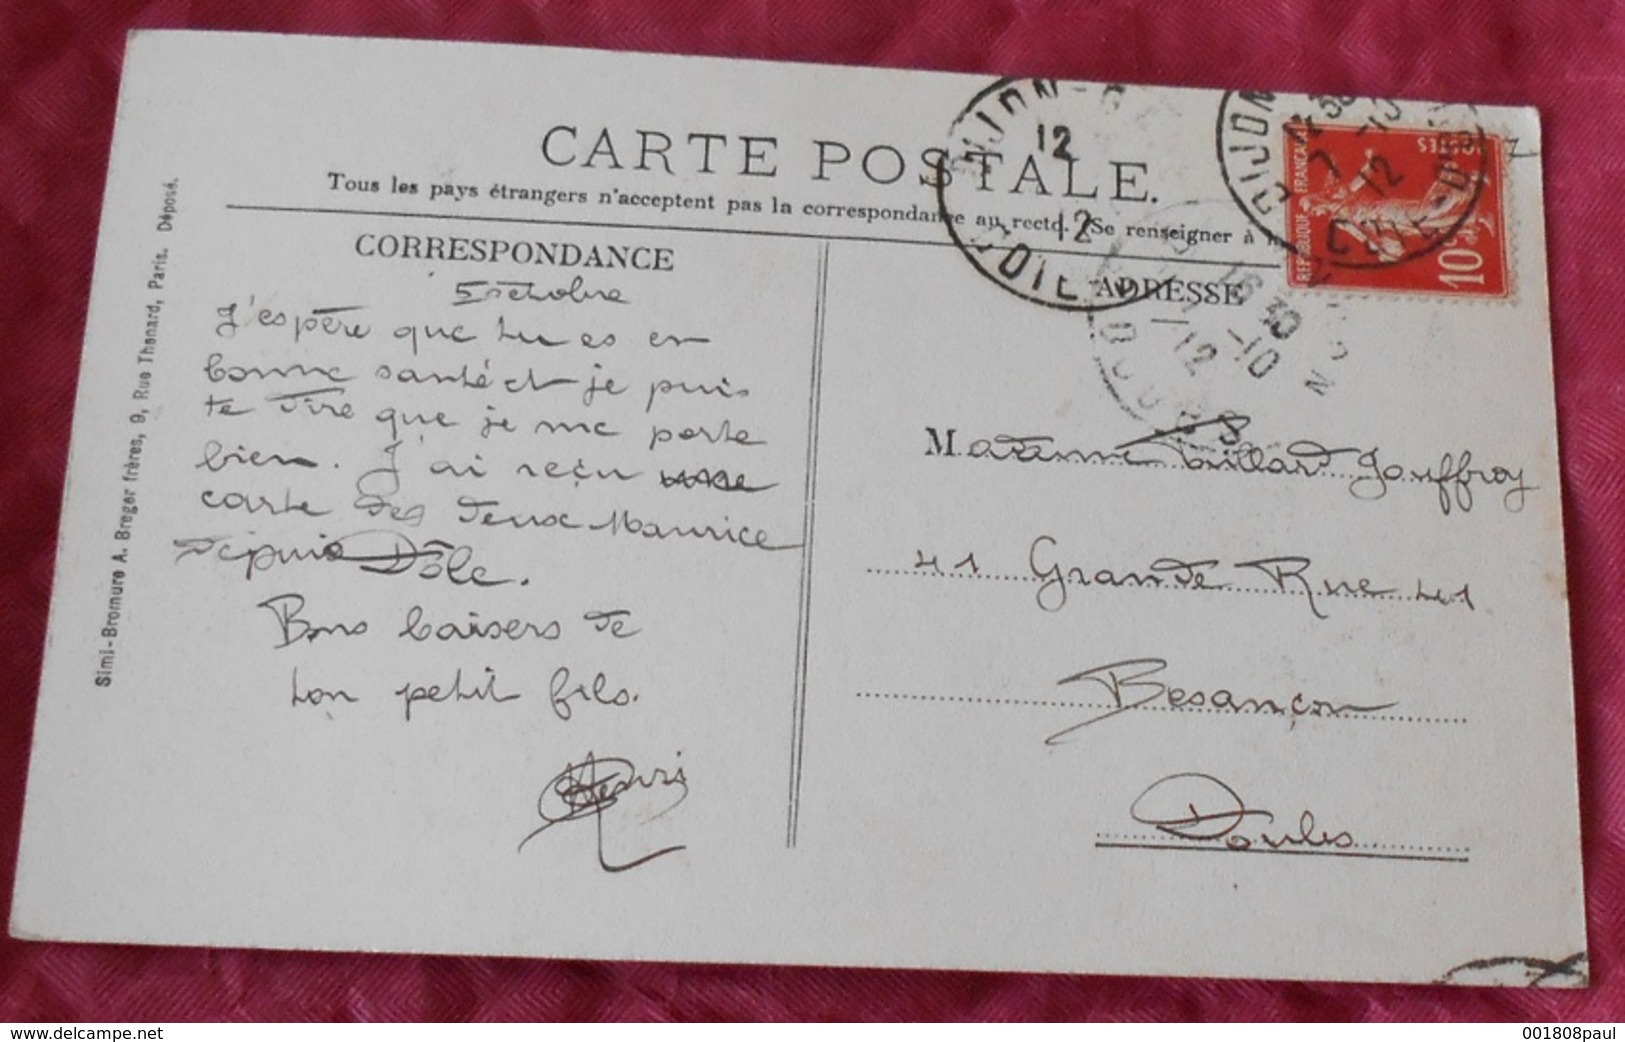 CARTE POSTALE.
Tous les pays étrangers n'acceptent pas la correspondance au recto. (Se renseigner à la
CORRESPONDANCE
5 octobre
J'espère que tu es en
bonne santé et je puis
te dire que je me porte
bien. J'ai reçu une
carte des deux Maurice
depuis Dôle.
Bons baisers de
ton petit fils.
Henri
Simi-Bromure A. Breger frères, 9, Rue Thenard, Paris. Déposé.
ADRESSE
Madame Jouffroy
41 Grande Rue 41
Besançon
Doubs
DIJON-G
12
12
DIJON
12 30
7 -10
12
COTE-D'OR
16 30
7 -10
12
DOUBS
REPUBLIQUE FRANÇAISE
POSTES
10 c
www.delcampe.net
001808paul